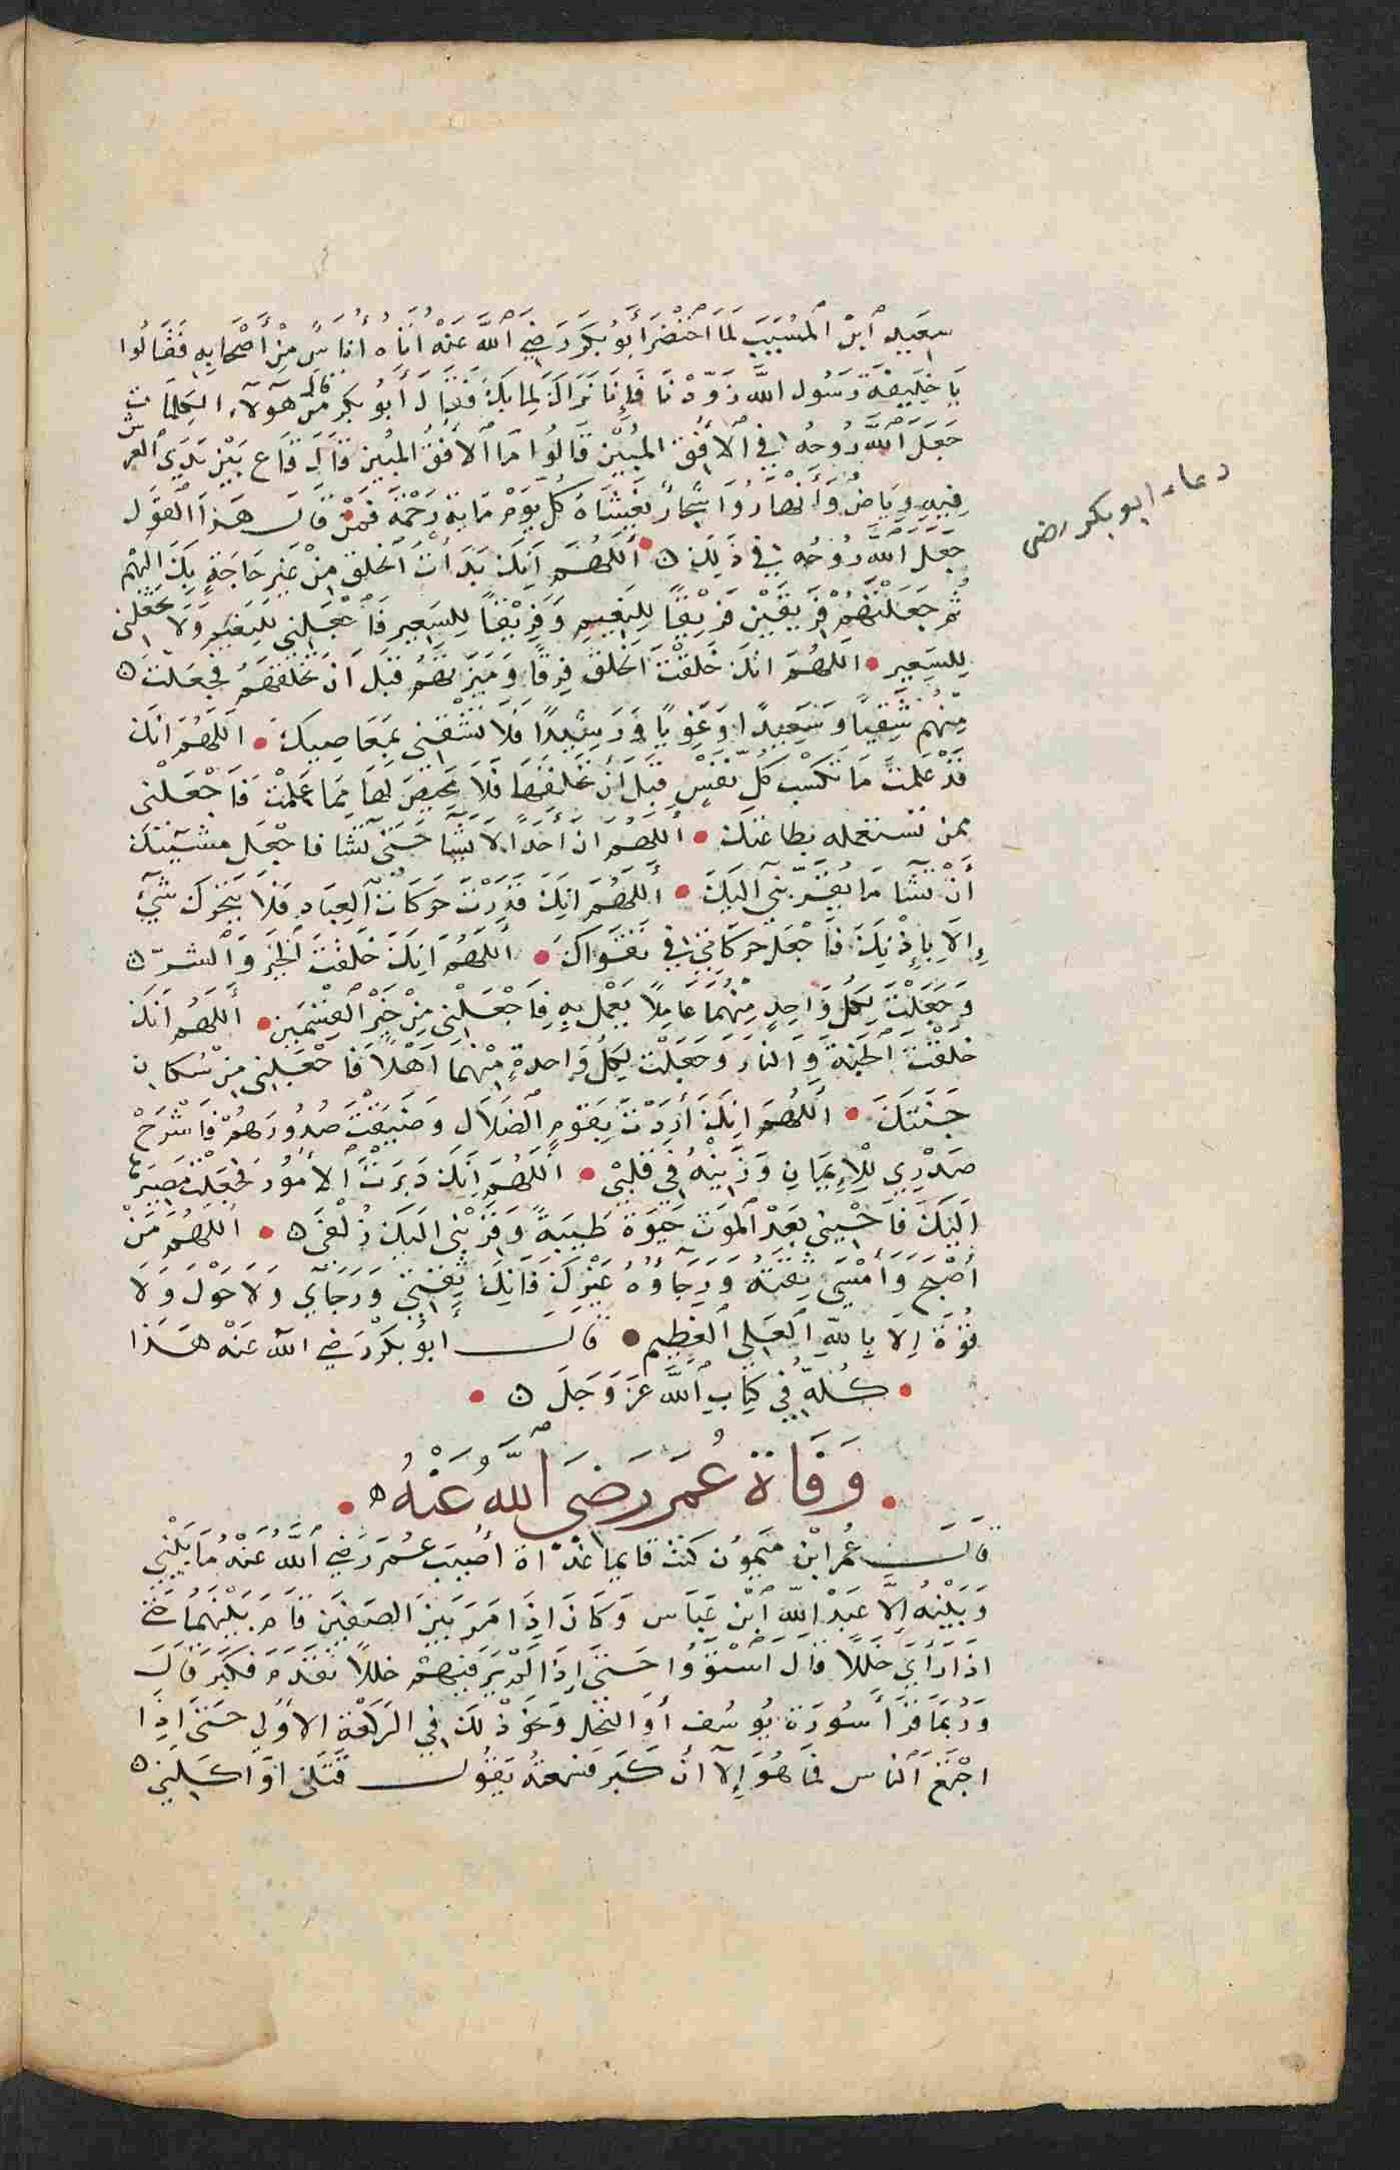 سعيد ابن المسيب لما احتضر أبو بكر رضي الله عنه اتاه أناس من أصحابه فقالوا
يا خليفة رسول الله زودنا فإنا نراك لما بك فقال أبو بكر من قال هؤلاء الكلمات ثم مات
جعل الله روحه في الأفق المبين قالوا ما الأفق المبين قال قاع بين يدي العرش
فيه رياض وأنهار وأشجار يغشاه كل يوم مائة رحمة فمن قال هذا القول
جعل الله روحه في ذلك ۝ اللهم انك بدأت الخلق من غير حاجة بك اليهم
ثم جعلتهم فريقين فريقا للنعيم وفريقا للسعير فاجعلني للنعيم ولا تجعلني
للسعير • اللهم انك خلقت الخلق فرقا وميزتهم قبل ان تخلقهم فجعلت
منهم شقيا وسعيدا وغويا ورشيدا فلا تشقني بمعاصيك • اللهم انك
قد علمت ما تكسب كل نفس قبل أن تخلقها فلا محيص لها مما علمت فاجعلني
ممن تستعمله بطاعتك • اللهم ان أحدا لا يشا حتى تشا فاجعل مشيئتك
أن تشا ما يقربني اليك • اللهم انك قدرت حركات العباد فلا يتحرك شيء
إلا بإذنك فاجعل حركاتي في تقواك • اللهم انك خلقت الخير والشر
وجعلت لكل واحد منهما عاملا يعمل به فاجعلني من خير القسمين • اللهم انك
خلقت الجنة والنار وجعلت لكل واحدة منهما أهلا فاجعلني من سكان
جنتك • اللهم انك أردت بقوم الضلال وضيقت صدورهم فاشرح
صدري للإيمان وزينه في قلبي • اللهم انك دبرت الأمور فجعلت مصيرها
اليك فأحيني بعد الموت حيوة طيبة وقربني اليك زلفى ۝ • اللهم من
أصبح وأمسى ثقته ورجاؤه غيرك فانك ثقتي ورجائي ولا حول ولا
قوة إلا بالله العلي العظيم • قال أبو بكر رضي الله عنه هذا
• كله في كتاب الله عز وجل ۝ •
• وفاة عمر رضي الله عنه •
قال عمر ابن ميمون كنت قايما غداة أصيب عمر رضي الله عنه ما بيني
وبينه إلا عبد الله ابن عباس وكان إذا مر بين الصفين قام بينهما
اذا رأى خللا قال استووا حتى إذا لم ير فيهم خللا تقدم فكبر قال
وربما قرأ سورة يوسف أو النحل ونحو ذلك في الركعة الأولى حتى إذا
اجتمع الناس فما هو إلا أن كبر فسمعته يقول قتلني أو أكلني
دعاء ابو بكر رضى